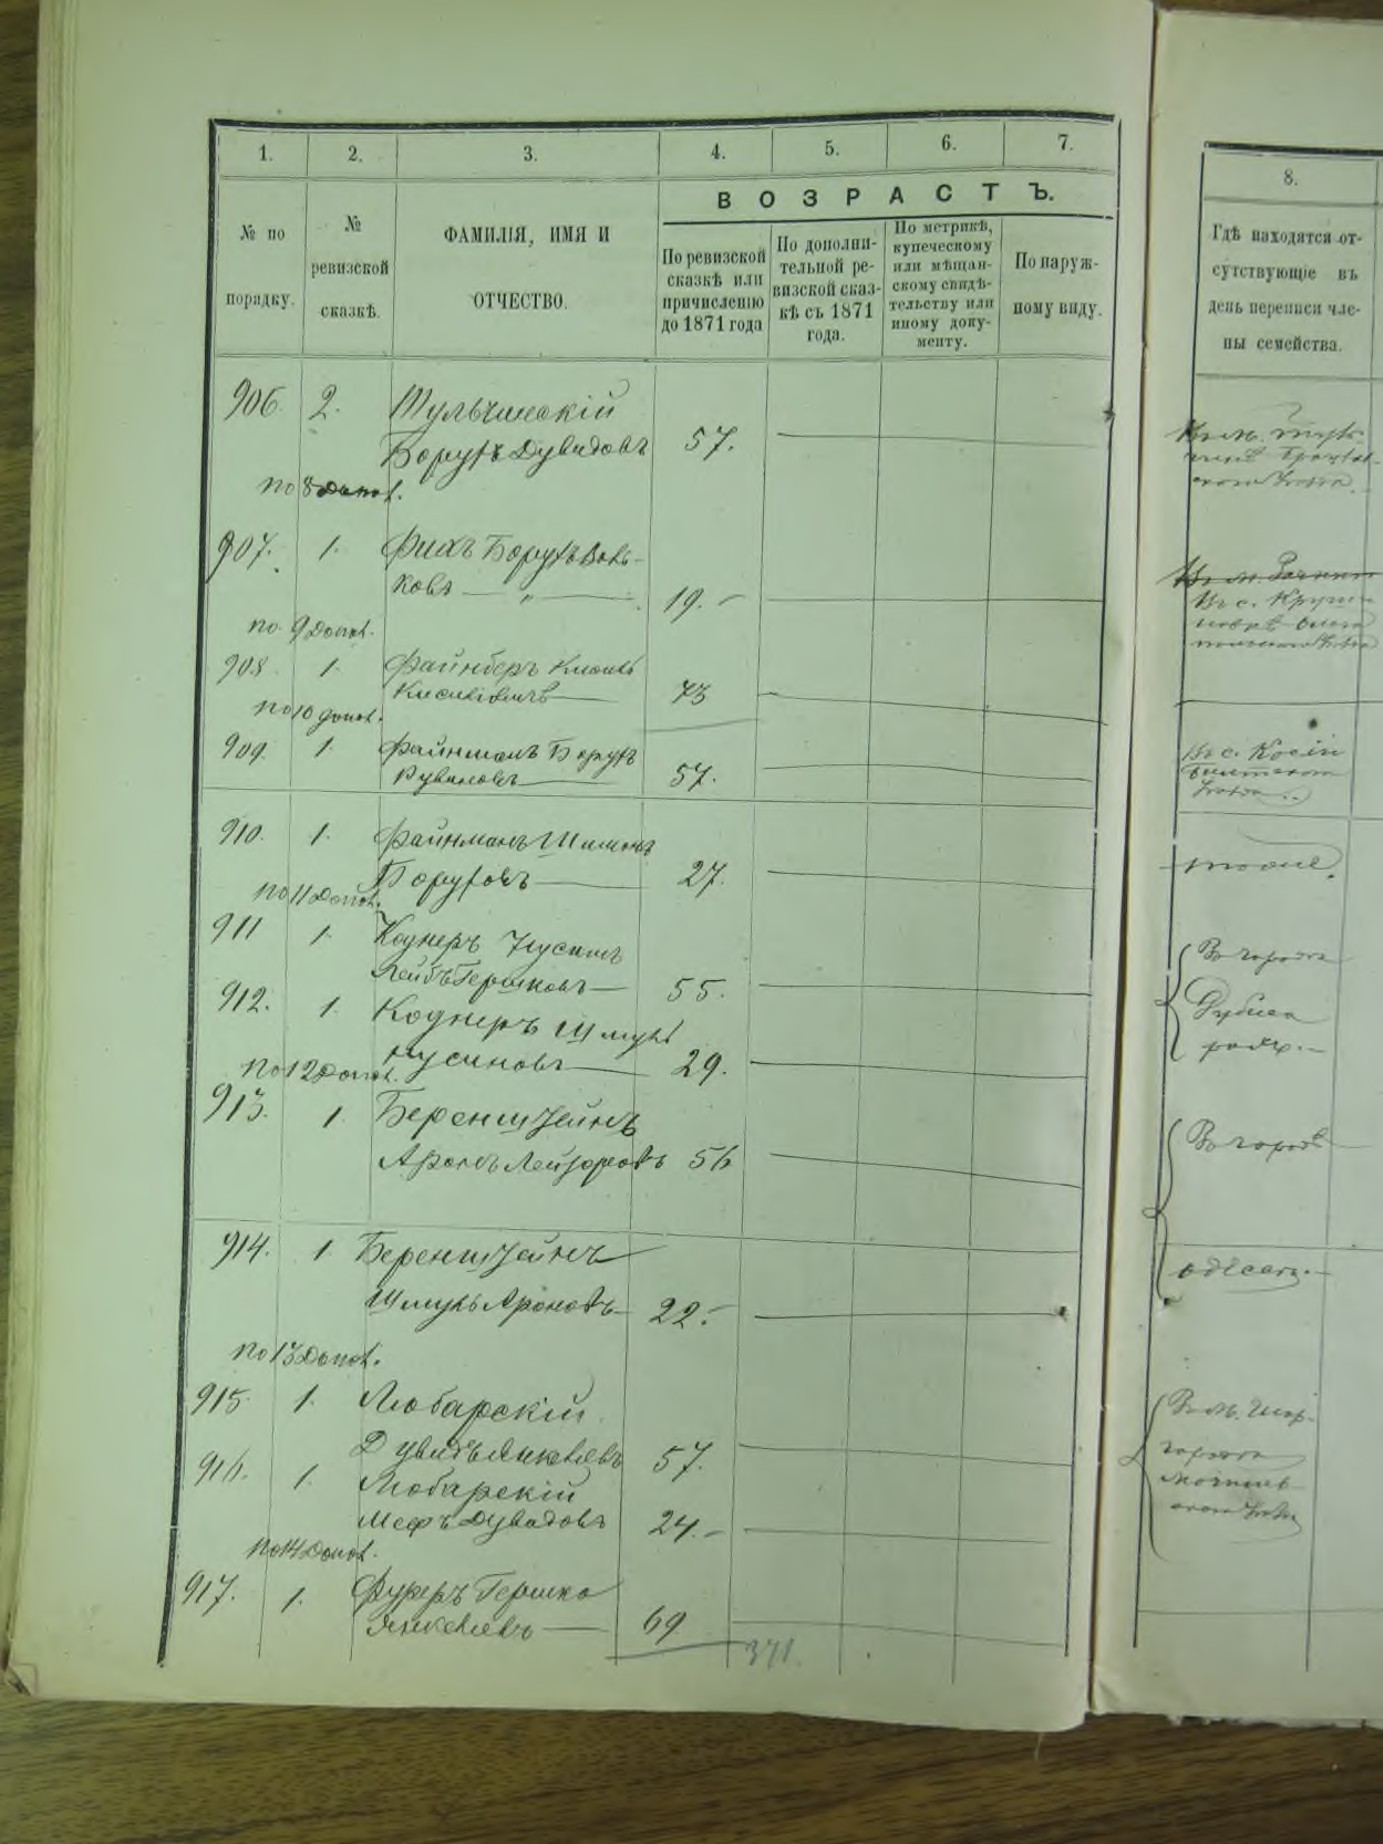 1. 2. 3. 4. 5. 6. 7.
№ по порядку.
№ ревизской сказкѣ.
ФАМИЛІЯ, ИМЯ И ОТЧЕСТВО.
ВОЗРАСТЪ.
По ревизской
сказкѣ или
причисленію
до 1871 года
По дополни-
тельной ре-
визской сказ-
кѣ съ 1871
года.
По метрикѣ,
купеческому
или мѣщан-
скому свидѣ-
тельству или
иному доку-
менту.
По наруж-
ному виду.
906. 2. Тульчинскій
Борухъ Дувидовъ 57.
по 8 допол.
907. 1. Фихъ Борухъ Воль-
ковъ 19.
по 9 допол.
908. 1.
73
по 10 допол.
909. 1. Файнманъ Борухъ
Рувиновъ 57.
910. 1. Файнманъ Шимонъ
Боруховъ 27.
по 11 допол.
911 1. Коднеръ Нусинъ
Лейбъ Гершковъ 55.
912. 1. Коднеръ Шмуль
Нусиновъ 29.
по 12 допол.
913. 1. Беренштейнъ
Аронъ Лейзоровъ 56
914. 1 Беренштейнъ
Шмуль Ароновъ 22.
по 13 допол.
915. 1. Любарскій
Дувидъ Янкелевъ 57.
916. 1. Любарскій
Дувидовъ 24.
по 14 допол.
917. 1. Фуреръ Гершко
Янкелевъ 69
371.
8.
Гдѣ находятся от-
сутствующіе въ
день переписи чле-
ны семейства.
Въ с.
Въ с.
тоже.
Въ городѣ
Въ городѣ
Одессѣ.
Въ м. Шар-
городѣ
Могилев-